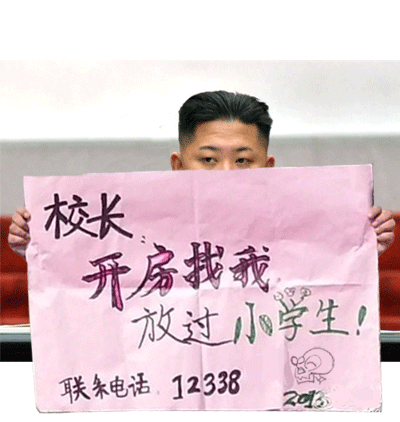 校长:
开房找我
放过小学生!
联系电话 12338
2013